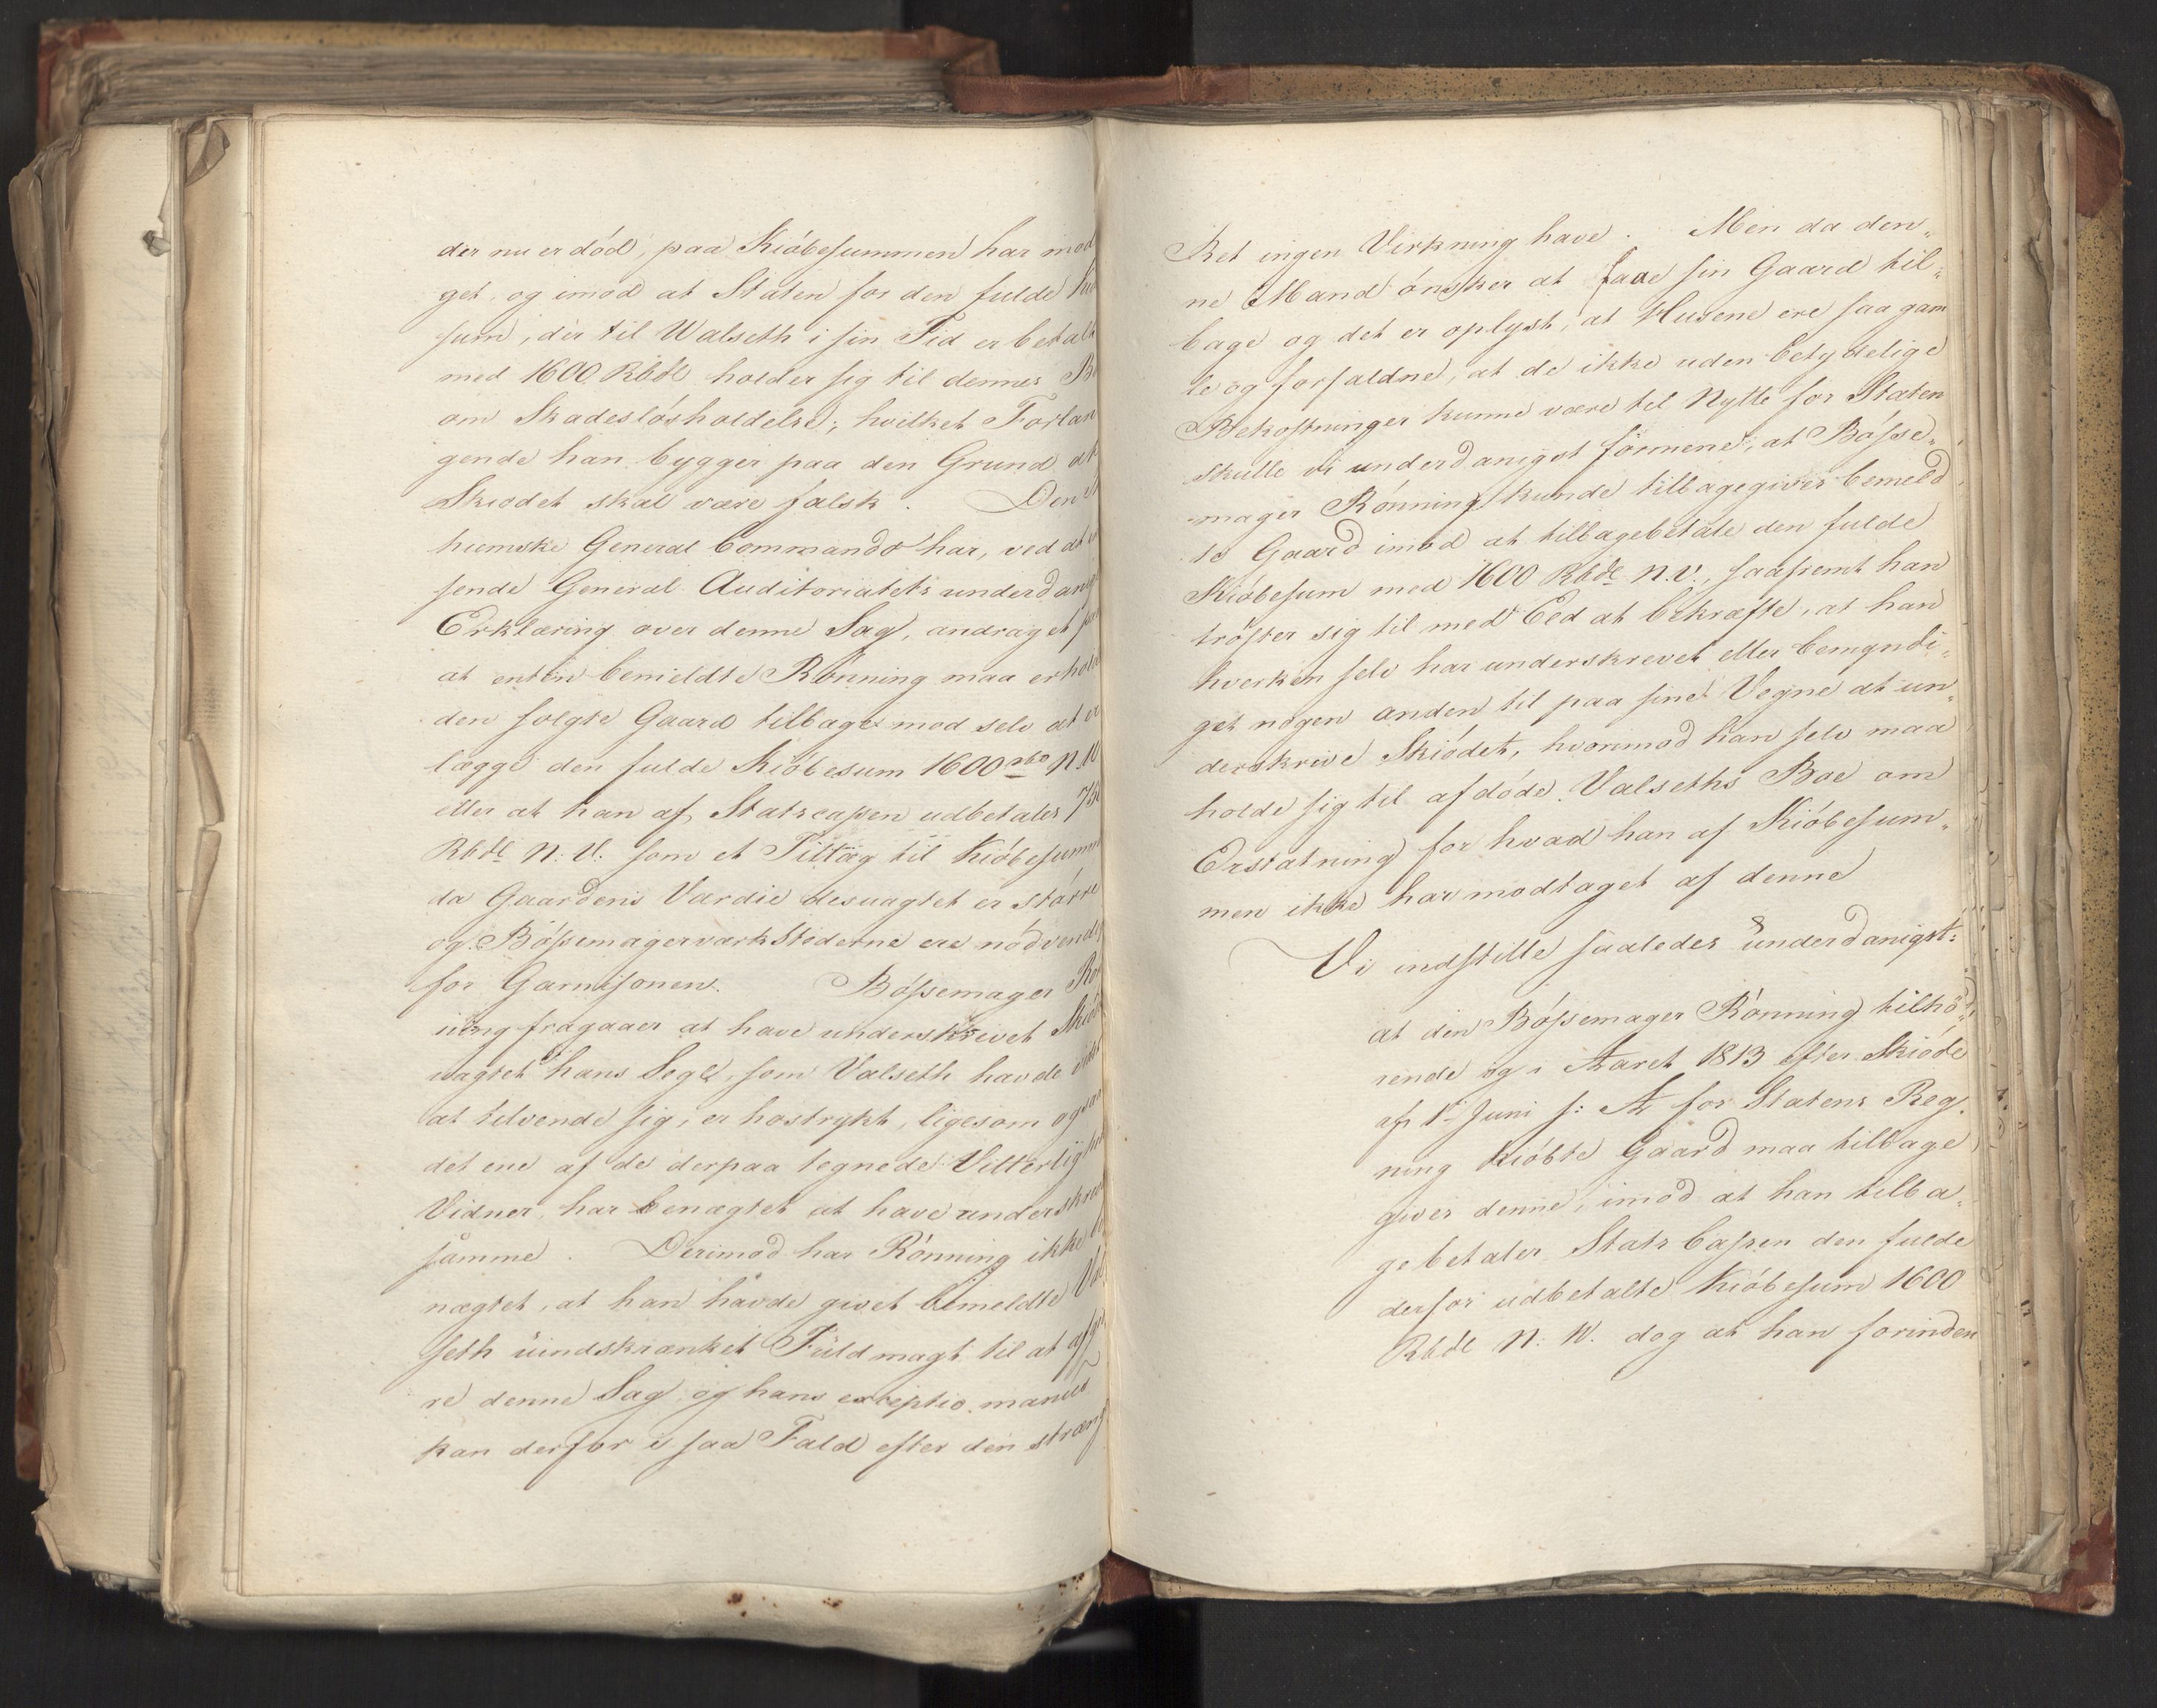 der nu er död, paa Kiöbesummen har mod
get, og imod at Staten for den fulde Kiö
sum, der til Walseth i sin Tid er betalt
med 1600 Rbdl holder sig til dennes Bo
om Skadeslösholdelse; hvilket Forlan
gende han bygger paa den Grund at
Skiödet skal være falsk. Den
hiemske General Commando har, ved at
sende General Auditoriatets underdanig
Erklæring over denne Sag, andraget
at enten bemeldte Rönning maa erhol
den solgte Gaard tilbage mod selv at
lægge den fulde Kiöbesum 1600 rbd N.W
eller at han af Statscassen udbetales 75
Rbdl N: V. som et Tillæg til Kiöbesumm
da Gaardens Værdie desuagtet er större
og Bössemagerværkstederne ere nödvendi
for Garnisonen. Bössemager Rön
ning fragaaer at have underskrevet Skiöd
uagtet hans Segl, som Valseth havde vidst
at tilvende sig, er hostrykt, ligesom ogsaa
det ene af de derpaa tegnede Vitterlighed
Vidner har benægtet at have underskrev
samme. Derimod har Rönning ikke be
nægtet, at han havde givet bemeldte Val
seth uindskrænket Fuldmagt til at afgiö
re denne Sag og hans exceptio
kan derfor i saa Fald efter den stræng
Ret ingen Virkning have. Men da den„
ne Mand önsker at faae sin Gaard til„
bage og det er oplyst, at Husene ere saa gam
le og forfaldne, at de ikke uden betydelige
Bekostninger kunne være til Nytte for Staten
skulle vi underdanigst formene, at Bösse„
mager Rönning kunde tilbagegives bemeld
te Gaard imod at tilbagebetale den fulde
Kiöbesum med 1600 Rbdl N.V., saafremt han
tröster sig til med Eed at bekræfte, at han
hverken selv har underskrevet eller bemyndi„
get nogen anden til paa sine Vegne at un„
derskrive Skiödet, hvorimod han selv maa
holde sig til afdöde Valseths Boe om
Erstatning for hvad han af Kiöbesum„
men ikke har modtaget af denne
Vi indstille saaledes underdanigst:
at den Bössemager Rönning tilhö„
rende og i Aaret 1813 efter Skiöde
af 1ste Juni s: A for Statens Reg„
ning kiöbte Gaard maa tilbage
gives denne, imod at han tilba„
gebetaler Stats Cassen den fulde
derfor udbetalte Kiöbesum 1600
Rbdl N: W. dog at han forinden